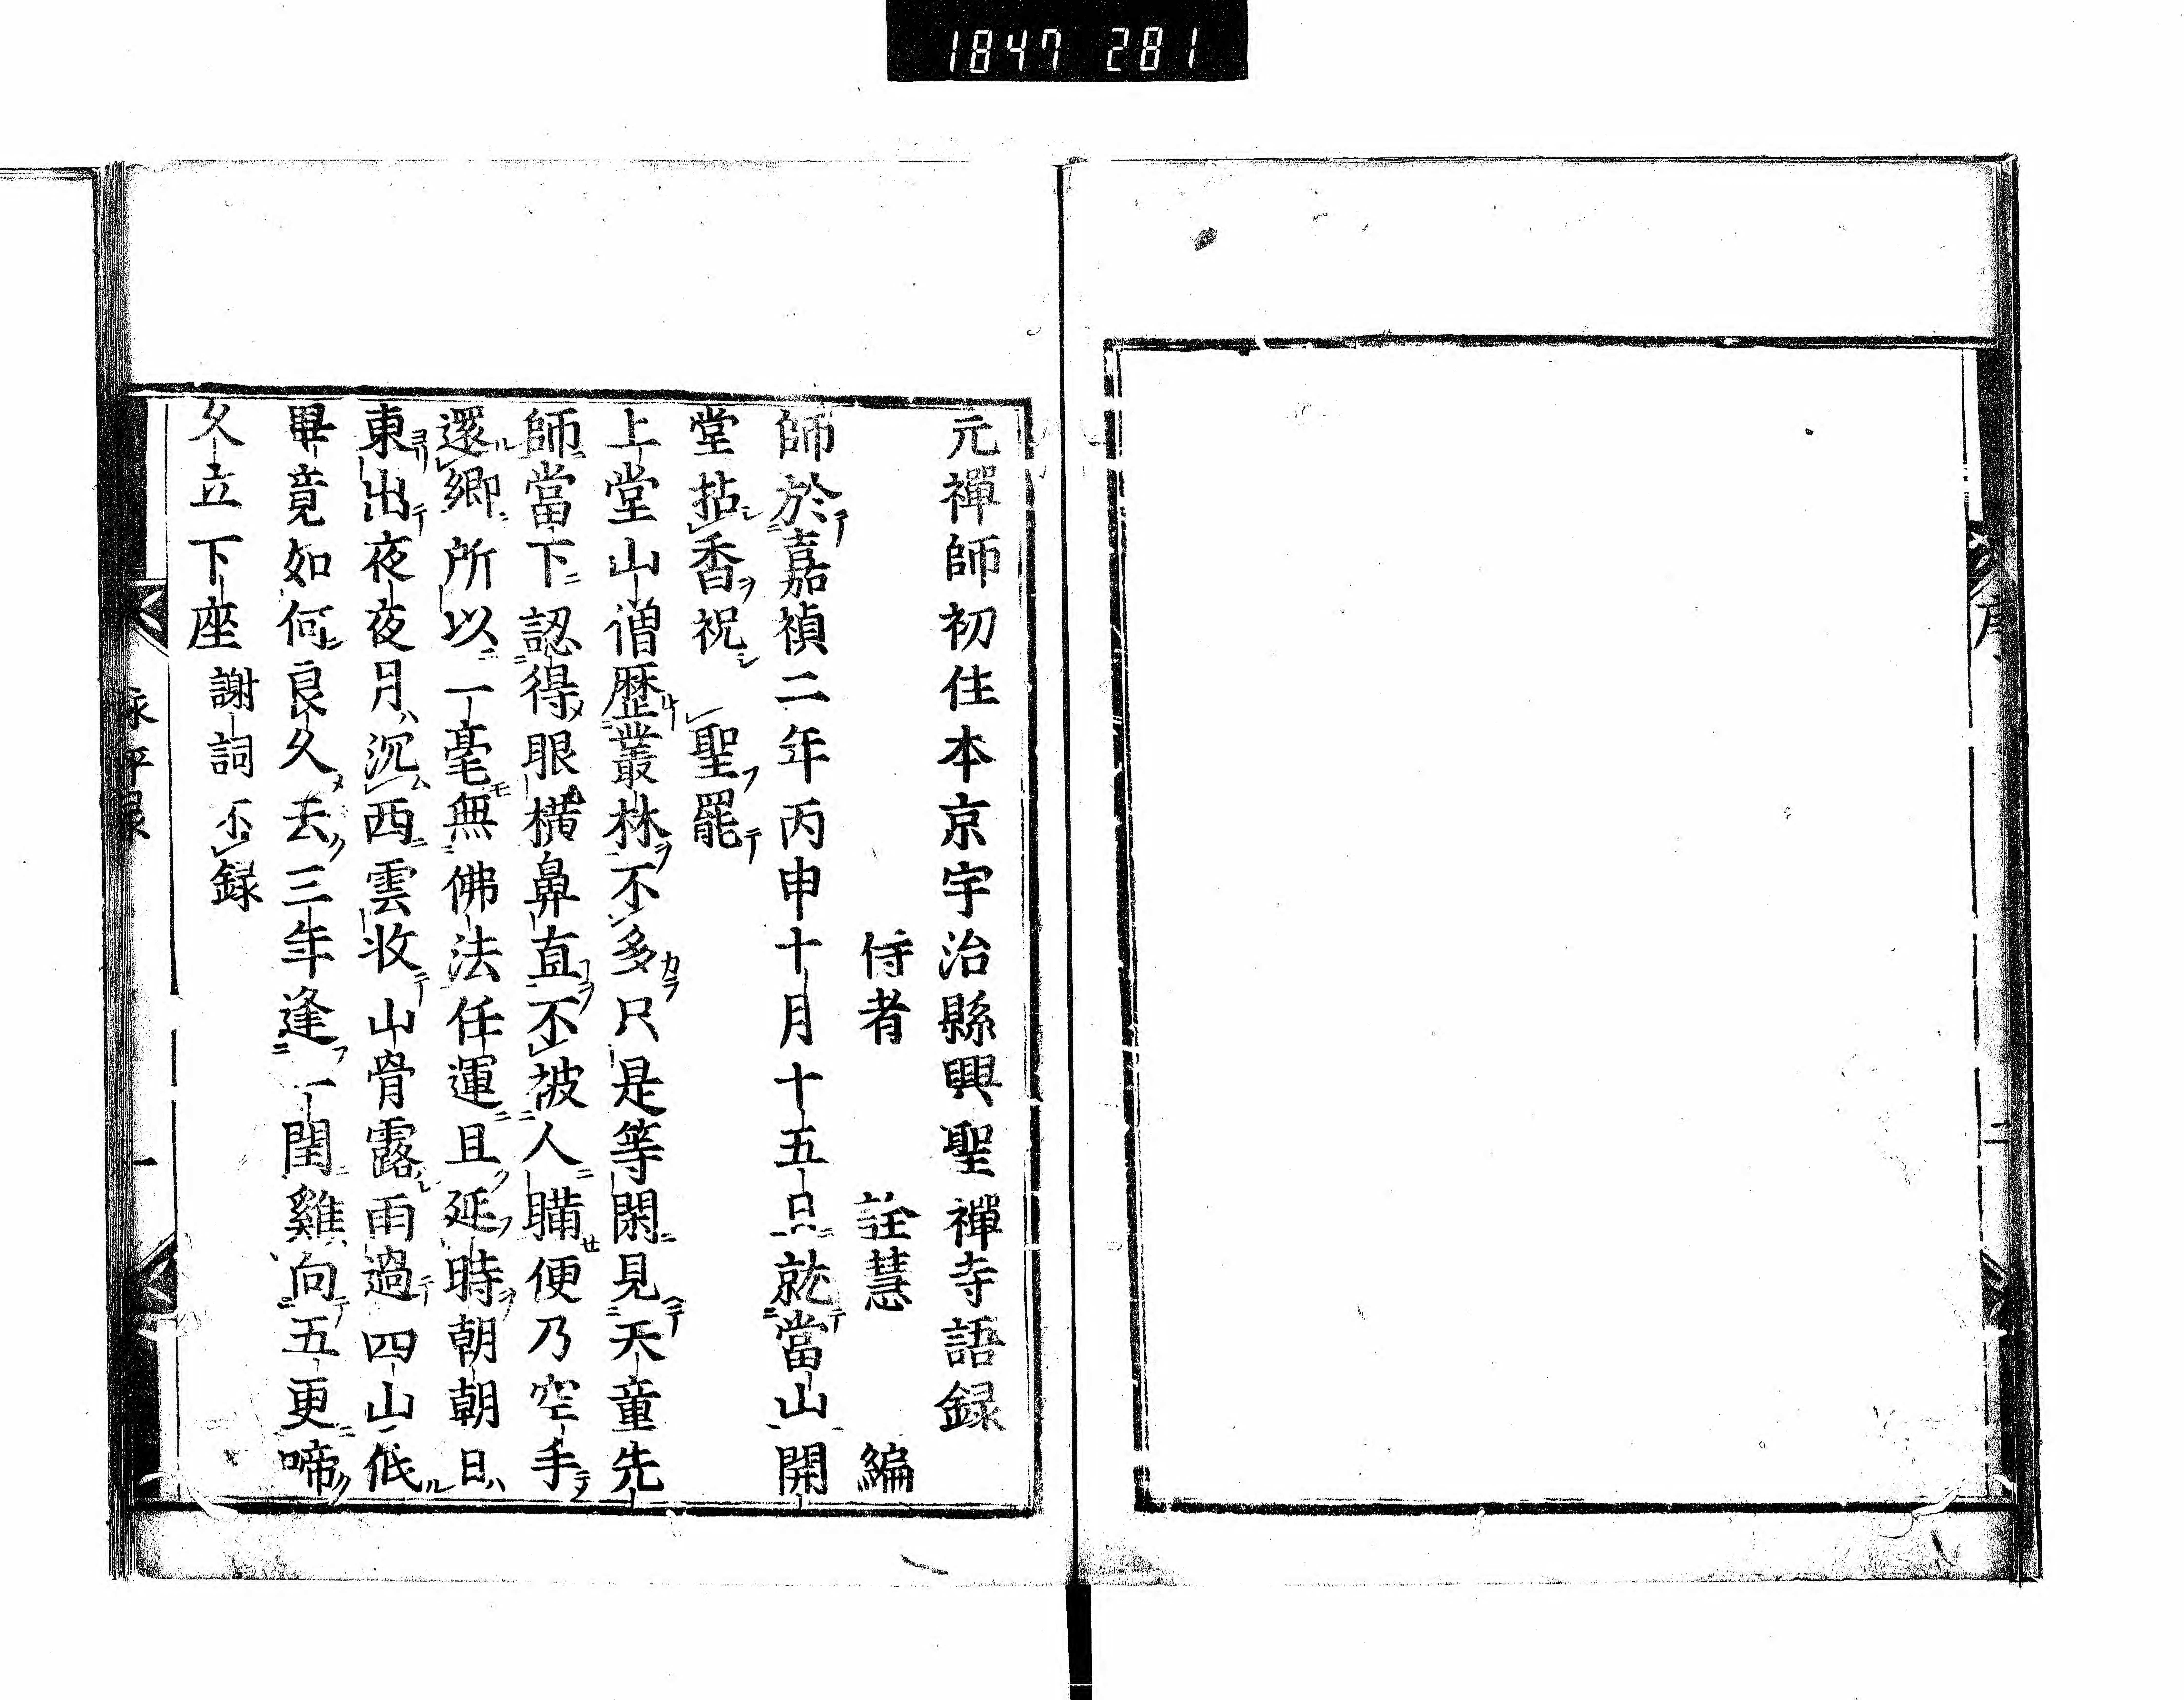 1847 281
序
二
元禪師初住本京宇治縣興聖禪寺語録
侍者 詮慧 編
師於嘉禎二年丙申十月十五日就當山開
堂拈香祝 聖罷
上堂山僧歴叢林不多只是等閑見天童先
師當下認得眼横鼻直不被人瞞便乃空手
還鄉所以一毫無佛法任運且延時朝朝日
東出夜夜月沉西雲收山骨露雨過四山低
畢竟如何良久云三年逢一閏雞向五更啼
久立下座 謝詞不録
永平録
一